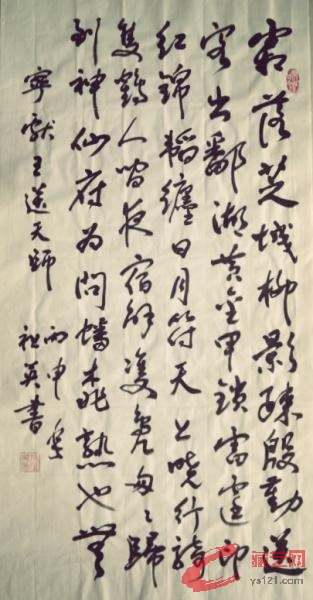 霜落芝城柳影疎殷勤送
客出鄱湖黄金甲鎖雷霆印
紅錦韜纏日月符天上曉行騎
隻鶴人間夜宿解雙鳧匆匆歸
到神仙府為問蟠桃熟也無
寧獻王送天師 丙申
祖英書
藏艺网
ys121.com